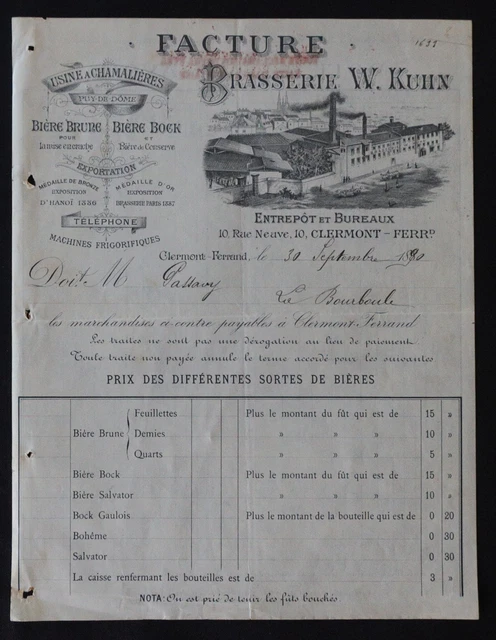 FACTURE
1695
USINE A CHAMALIÈRES
PUY-DE-DÔME
BRASSERIE W. KUHN
BIÈRE BRUNE BIÈRE BOCK
POUR ET
la mise en cruche Bière de Conserve
EXPORTATION
MÉDAILLE DE BRONZE MÉDAILLE D'OR
EXPOSITION EXPOSITION
D'HANOI 1886 BRASSERIE PARIS 1887
TÉLÉPHONE
MACHINES FRIGORIFIQUES
ENTREPÔT ET BUREAUX
10, Rue Neuve, 10, CLERMONT-FERRD
Clermont-Ferrand, le 30 Septembre 1890
Doit M Passavy
La Bourboule
les marchandises ci-contre payables à Clermont-Ferrand
Les traites ne sont pas une dérogation au lieu de paiement.
Toute traite non payée annule le terme accordé pour les suivantes
PRIX DES DIFFÉRENTES SORTES DE BIÈRES
Feuillettes Plus le montant du fût qui est de 15 »
Bière Brune Demies » » » 10 »
Quarts » » » 5 »
Bière Bock Plus le montant du fût qui est de 15 »
Bière Salvator » » » 10 »
Bock Gaulois Plus le montant de la bouteille qui est de 0 20
Bohême 0 30
Salvator 0 30
La caisse renfermant les bouteilles est de 3 »
NOTA: On est prié de tenir les fûts bouchés